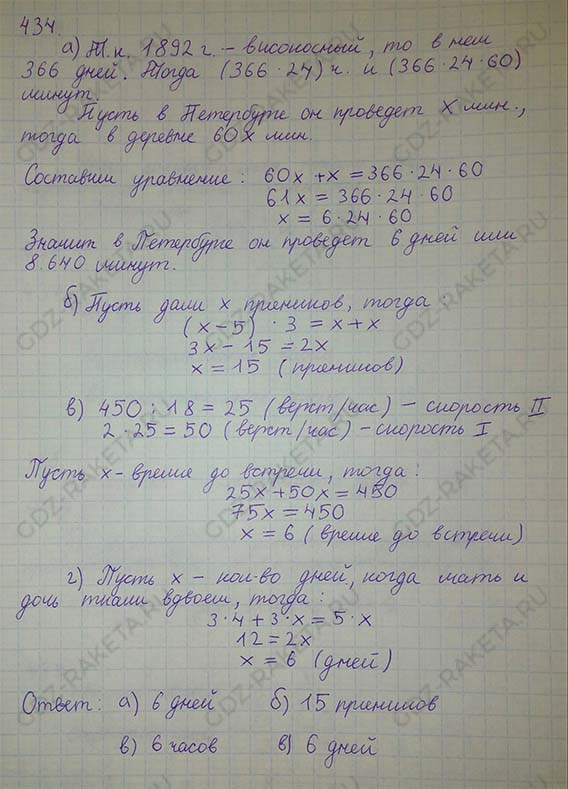 434.
а) Т.к. 1892 г. – високосный, то в нем
366 дней. Тогда (366·24) ч. и (366·24·60)
минут.
Пусть в Петербурге он проведет x мин.,
тогда в деревне 60x мин.
Составим уравнение: 60x + x = 366·24·60
61x = 366·24·60
x = 6·24·60
Значит в Петербурге он проведет 6 дней или
8.640 минут.
б) Пусть дали x пряников, тогда:
(x – 5) · 3 = x + x
3x – 15 = 2x
x = 15 (пряников)
в) 450 : 18 = 25 (верст/час) – скорость II
2·25 = 50 (верст/час) – скорость I
Пусть x - время до встречи, тогда:
25x + 50x = 450
75x = 450
x = 6 (время до встречи)
г) Пусть x – кол-во дней, когда мать и
дочь ткали вдвоем, тогда:
3·4 + 3·x = 5·x
12 = 2x
x = 6 (дней)
Ответ: а) 6 дней б) 15 пряников
в) 6 часов в) 6 дней
GDZ-RAKETA.RU